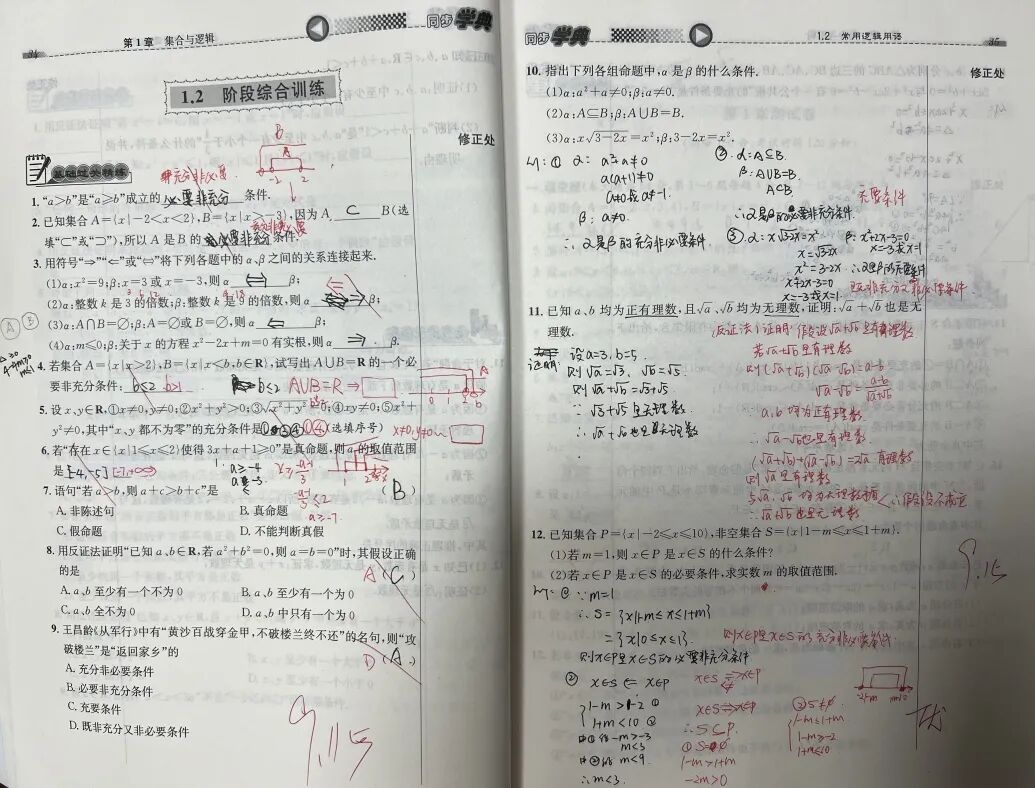 34
第1章 集合与逻辑
同步 学典
1.2 阶段综合训练
修正处
基础过关精练
B
A
-2 2
1. “a>b”是“a≥b”成立的 必要非充分 条件.
2. 已知集合 A={x|-2<x<2},B={x|x>-3},因为 A ⊂ B(选
填“⊂”或“⊃”),所以 A 是 B 的 必要非充分 条件.
3. 用符号“⇒”“⇐”或“⇔”将下列各题中的 α、β 之间的关系连接起来.
(1)α:x²=9;β:x=3 或 x=-3,则 α ⇔ β;
(2)α:整数 k 是 3 的倍数;β:整数 k 是 9 的倍数,则 α ⇐ β;
(3)α:A∩B=∅;β:A=∅或 B=∅,则 α ⇐ β;
(4)α:m≤0;β:关于 x 的方程 x²-2x+m=0 有实根,则 α ⇒ β.
4. 若集合 A={x|x>2},B={x|x<b,b∈R},试写出 A∪B=R 的一个必
要非充分条件: b≤2 b>1 b≤2 A∪B=R ⇒
5. 设 x,y∈R,①x≠0,y≠0;②x²+y²>0;③√x²+y²≠0;④xy≠0;⑤x²+
y²≠0,其中“x、y 都不为零”的充分条件是 ①③④ ①④ (选填序号)
6. 若“存在 x∈{x|1≤x≤2}使得 3x+a+1≥0”是真命题,则 a 的取值范围
是 [-4,+∞) [-7,+∞)
a≥-4
a≥-7
7. 语句“若 a>b,则 a+c>b+c”是 ( B )
A. 非陈述句 B. 真命题
C. 假命题 D. 不能判断真假
8. 用反证法证明“已知 a、b∈R,若 a²+b²=0,则 a=b=0”时,其假设正确
的是 A ( C )
A. a、b 至少有一个不为 0 B. a、b 至少有一个为 0
C. a、b 全不为 0 D. a、b 中只有一个为 0
9. 王昌龄《从军行》中有“黄沙百战穿金甲,不破楼兰终不还”的名句,则“攻
破楼兰”是“返回家乡”的 D ( A )
A. 充分非必要条件
B. 必要非充分条件
C. 充要条件
D. 既非充分又非必要条件
9.15
同步 学典
1.2 常用逻辑用语
35
修正处
10. 指出下列各组命题中,α 是 β 的什么条件.
(1)α:a²+a≠0;β:a≠0.
(2)α:A⊆B;β:A∪B=B.
(3)α:x√3-2x=x²;β:3-2x=x².
解:① α: a²+a≠0
a(a+1)≠0
a≠0或a≠-1.
β: a≠0.
∴α是β的充分非必要条件.
②. α:A⊆B.
β: A∪B=B.
A⊂B
充要条件
∴α是β的必要非充分条件.
③. α: x√3-2x=x² β: x²+2x-3=0.
x=√3-2x x=-3或x=1
x²=3-2x ∴α是β的充要条件
x²+2x-3=0
x=-3或x=1
既非充分又非必要条件
11. 已知 a、b 均为正有理数,且√a、√b均为无理数,证明:√a+√b也是无
理数.
证明: 设a=3,b=5.
则√a=√3, √b=√5.
则√a+√b=√3+√5
∴√3+√5是无理数.
∴√a+√b也是无理数
反证法:证明:假设√a+√b是有理数
若√a+√b是有理数
则(√a+√b)(√a-√b)=a-b
√a-√b=a-b/√a+√b
∵a,b均为正有理数.
∴√a-√b也是有理数
(√a+√b)+(√a-√b)=2√a 有理数
则√a是有理数
与√a、√b均为无理数矛盾 ∴假设不成立
∴√a+√b也是无理数
12. 已知集合 P={x|-2≤x≤10},非空集合 S={x|1-m≤x≤1+m}.
(1)若 m=1,则 x∈P 是 x∈S 的什么条件?
(2)若 x∈P 是 x∈S 的必要条件,求实数 m 的取值范围.
解:① ∵m=1
∴S={x|1-m≤x≤1+m}
={x|0≤x≤1}
则x∈P是x∈S的必要非充分条件
则x∈P是x∈S的充分非必要条件
② x∈S⇐x∈P
{1-m>-2 ①
1+m<10 ②
由①得-m>-3
m<3
由②得m<9.
∴m<3.
x∈S⇒x∈P
∴S⊆P.
①S=∅
1-m>1+m
-2m>0
②S≠∅
{1-m≤1+m
1-m≥-2
1+m≤10
9.15
优